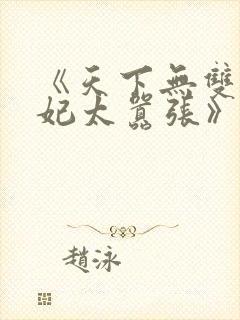 《天下無雙
妃太囂張》
趙泳